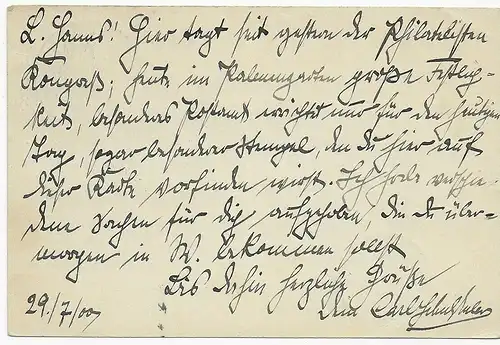 L. Hanns! Hier tagt seit gestern der Philatelisten
Kongreß; heute im Palmengarten große Festlich-
keit, besonderes Postamt errichtet nur für den heutigen
Tag, sogar besonderer Stempel, den du hier auf
dieser Karte vorfinden wirst. Ich habe verschie-
dene Sachen für dich aufgehoben, die du über-
morgen in W. bekommen sollst
Bis dahin herzliche Grüße
29./7/00 Dein Carl